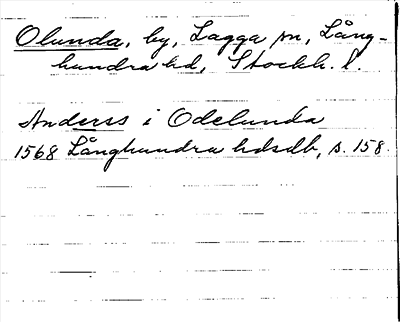 Olunda, by, Lagga sn, Lång-
hundra hd, Stockh. l.
Anderss i Odelunda
1568 Långhundra hdsdb, s. 158.